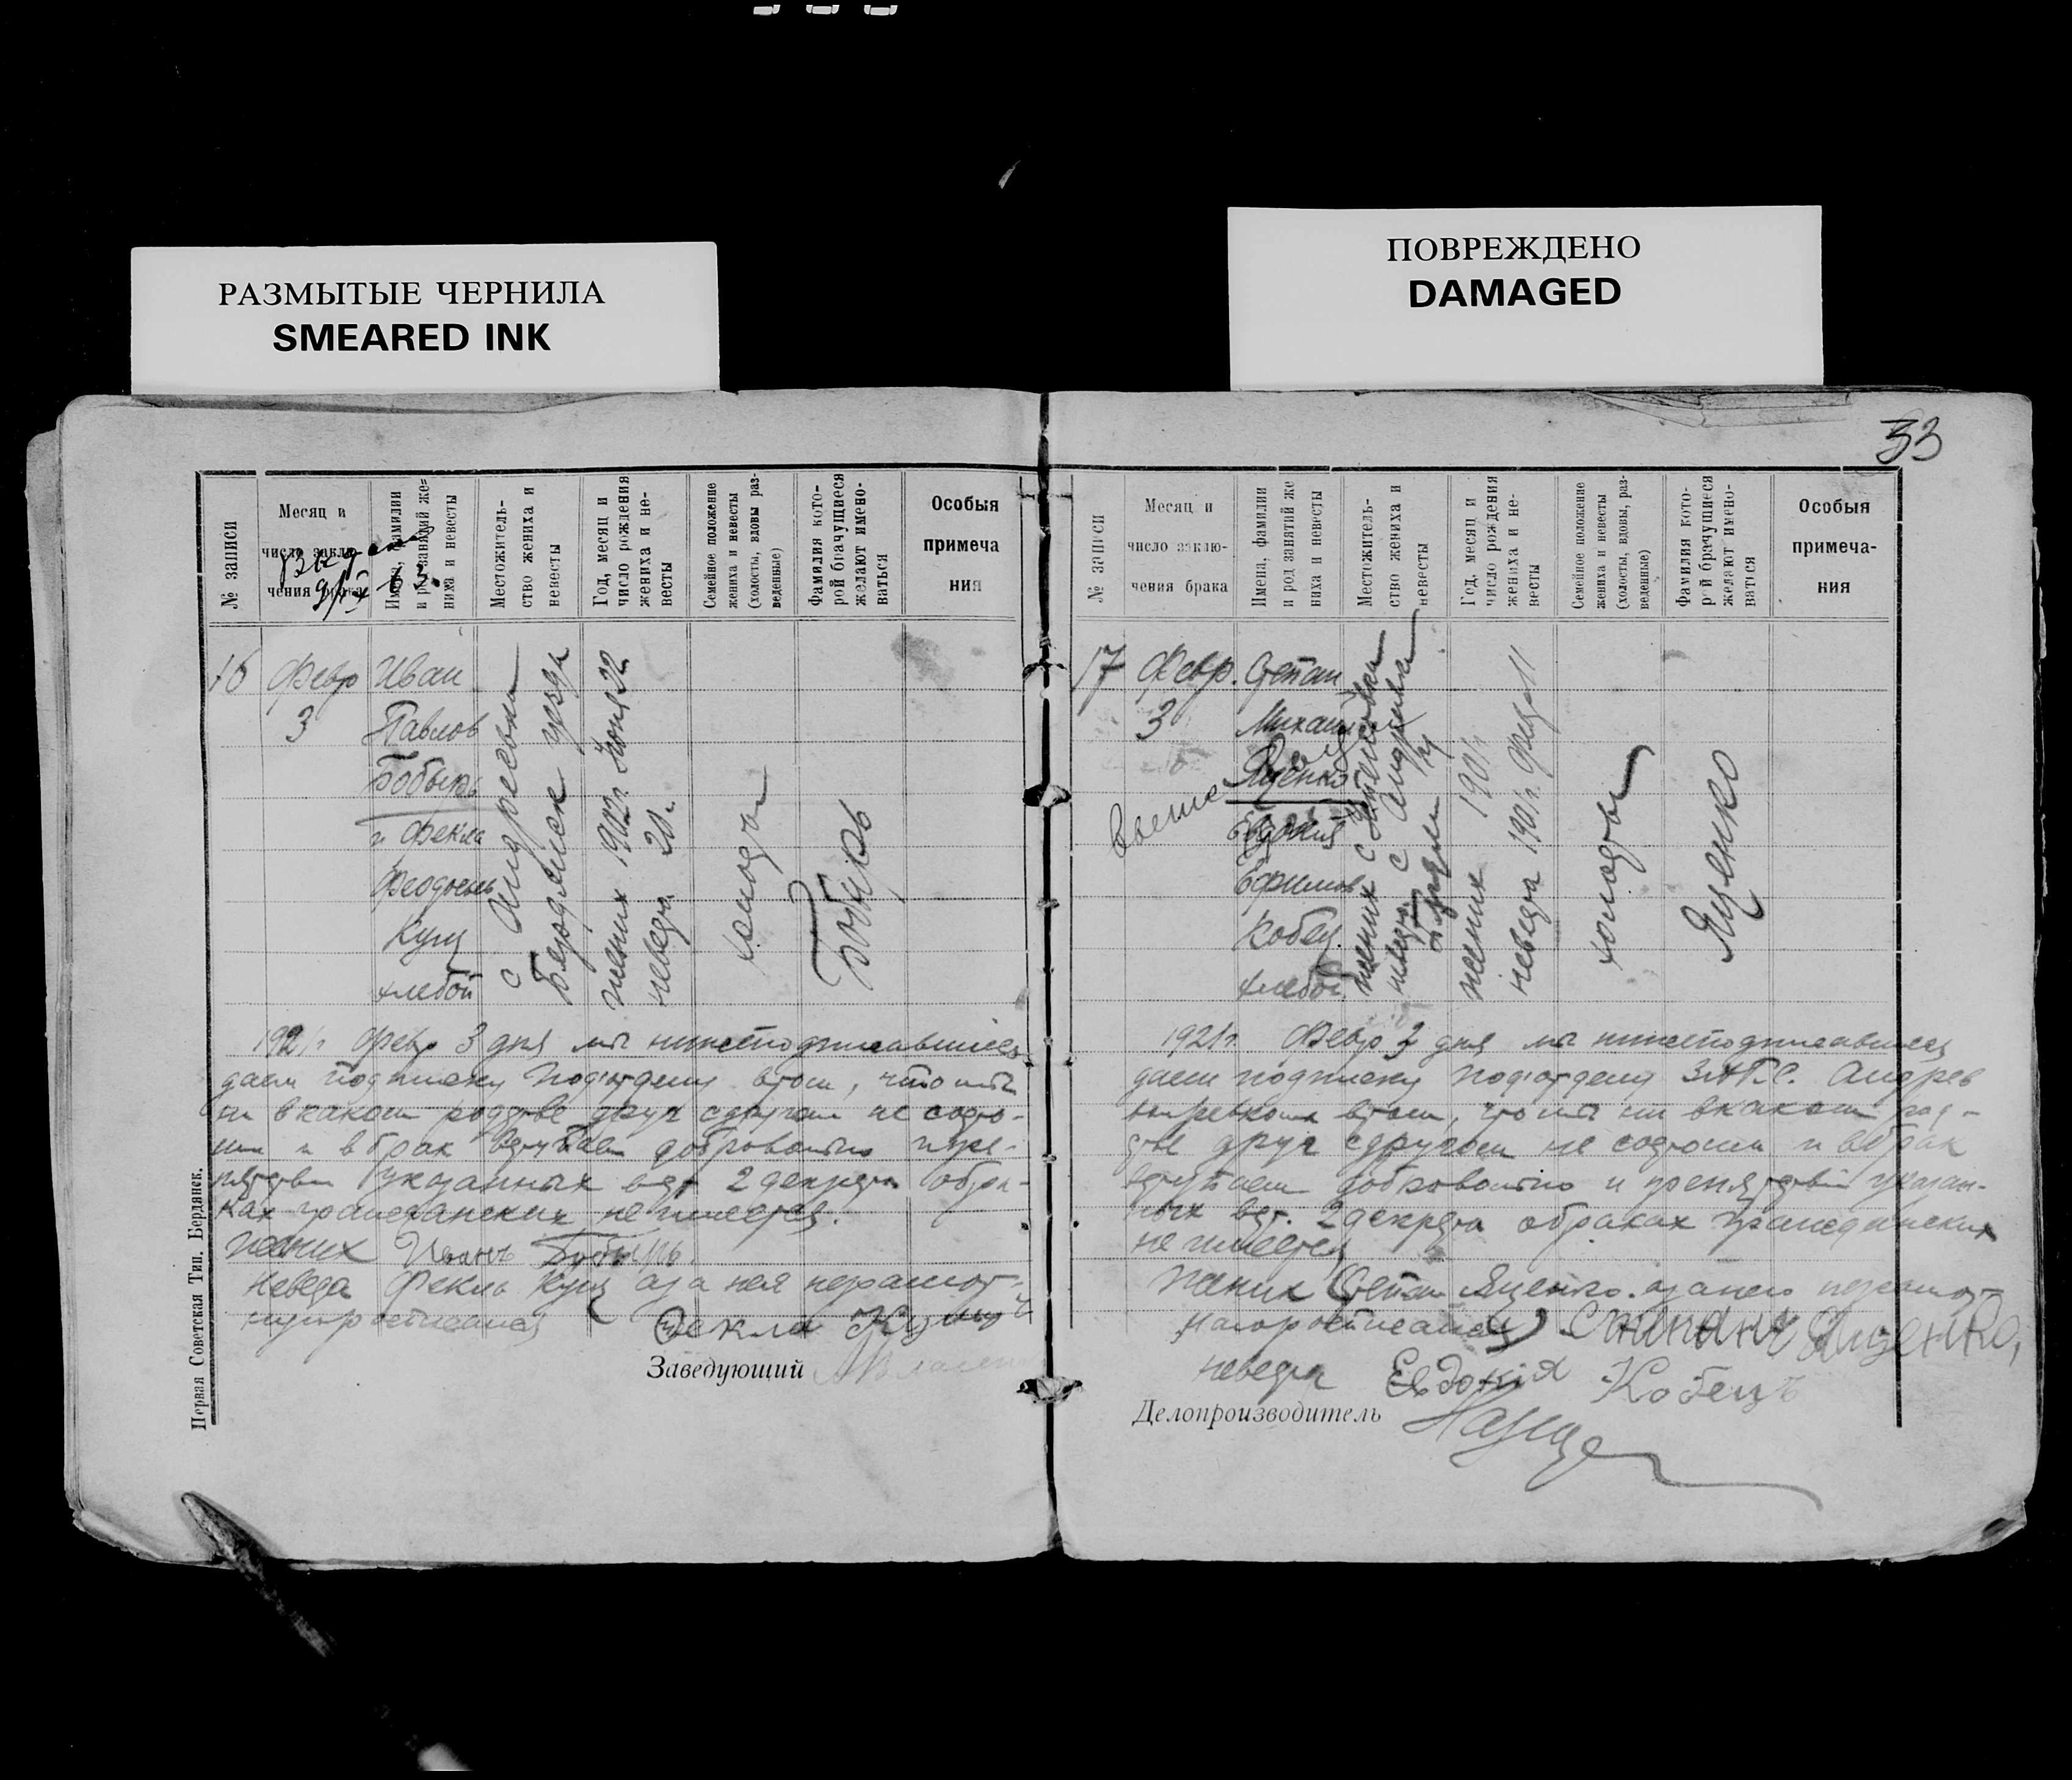 РАЗМЫТЫЕ ЧЕРНИЛА
SMEARED INK
ПОВРЕЖДЕНО
DAMAGED
33
№ записи
Месяц и число заклю- чения брака
Имена, фамилии и род занятий же- ниха и невесты
Местожитель- ство жениха и невесты
Год, месяц и число рождения жениха и не- весты
Семейное положение жениха и невесты (холосты, вдовы раз- веденные)
Фамилия кото- рой брачущиеся желают имено- ваться
Особыя примеча ния
16 Февр Иван
3 Павлов
Бобырь
и Фекла
Феодосьев
Кущ
хлебоп
с Андреевки
Бердянск уезда
жених 1902 г. Июня 22
невеста 20 л.
холосты
Бобырь
1921 г Февр 3 дня мы нижеподписавшиеся
даем подписку Подотделу втом, что мы
ни вкаком родстве друг сдругом не состо-
им и в брак вступаем добровольно и пре-
пятствий указанных в ст 2 декрета о бра-
ках гражданских не имеется.
жених Иванъ Бобырь.
Невеста Фекла Кущ аза нея неграмот-
ную росписался
Заведующий
Первая Советская Тип. Бердянск.
№ записи
Месяц и число заклю- чения брака
Имена, фамилии и род занятий же ниха и невесты
Местожитель- ство жениха и невесты
Год, месяц и число рождения жениха и не- весты
Семейное положение жениха и невесты (холосты, вдовы, раз- веденные)
Фамилия кото- рой брачущиеся желают имено- ваться
Особыя примеча- ния
17 Февр. Степан
3 Михаил
Яценко
Евдокия
Ефимов
Кобец
хлебоп
жених с
невеста с Андреевки
жених 1901 г
невеста 1901 г. Февр 11
холосты
Яценко
1921 г. Февр 3 дня мы нижеподписавшиеся
даем подписку Подотделу ЗАГС. Андреев
втом, что мы ни вкаком род-
стве друг сдругом не состоим и вбрак
вступаем добровольно и препятствий указан-
ных в ст. 2 декрета обраках гражданских
не имеется
Жених Степан Яценко. азанего неграмот-
наго росписался Яценко
невеста Евдокія Кобецъ
Делопроизводитель